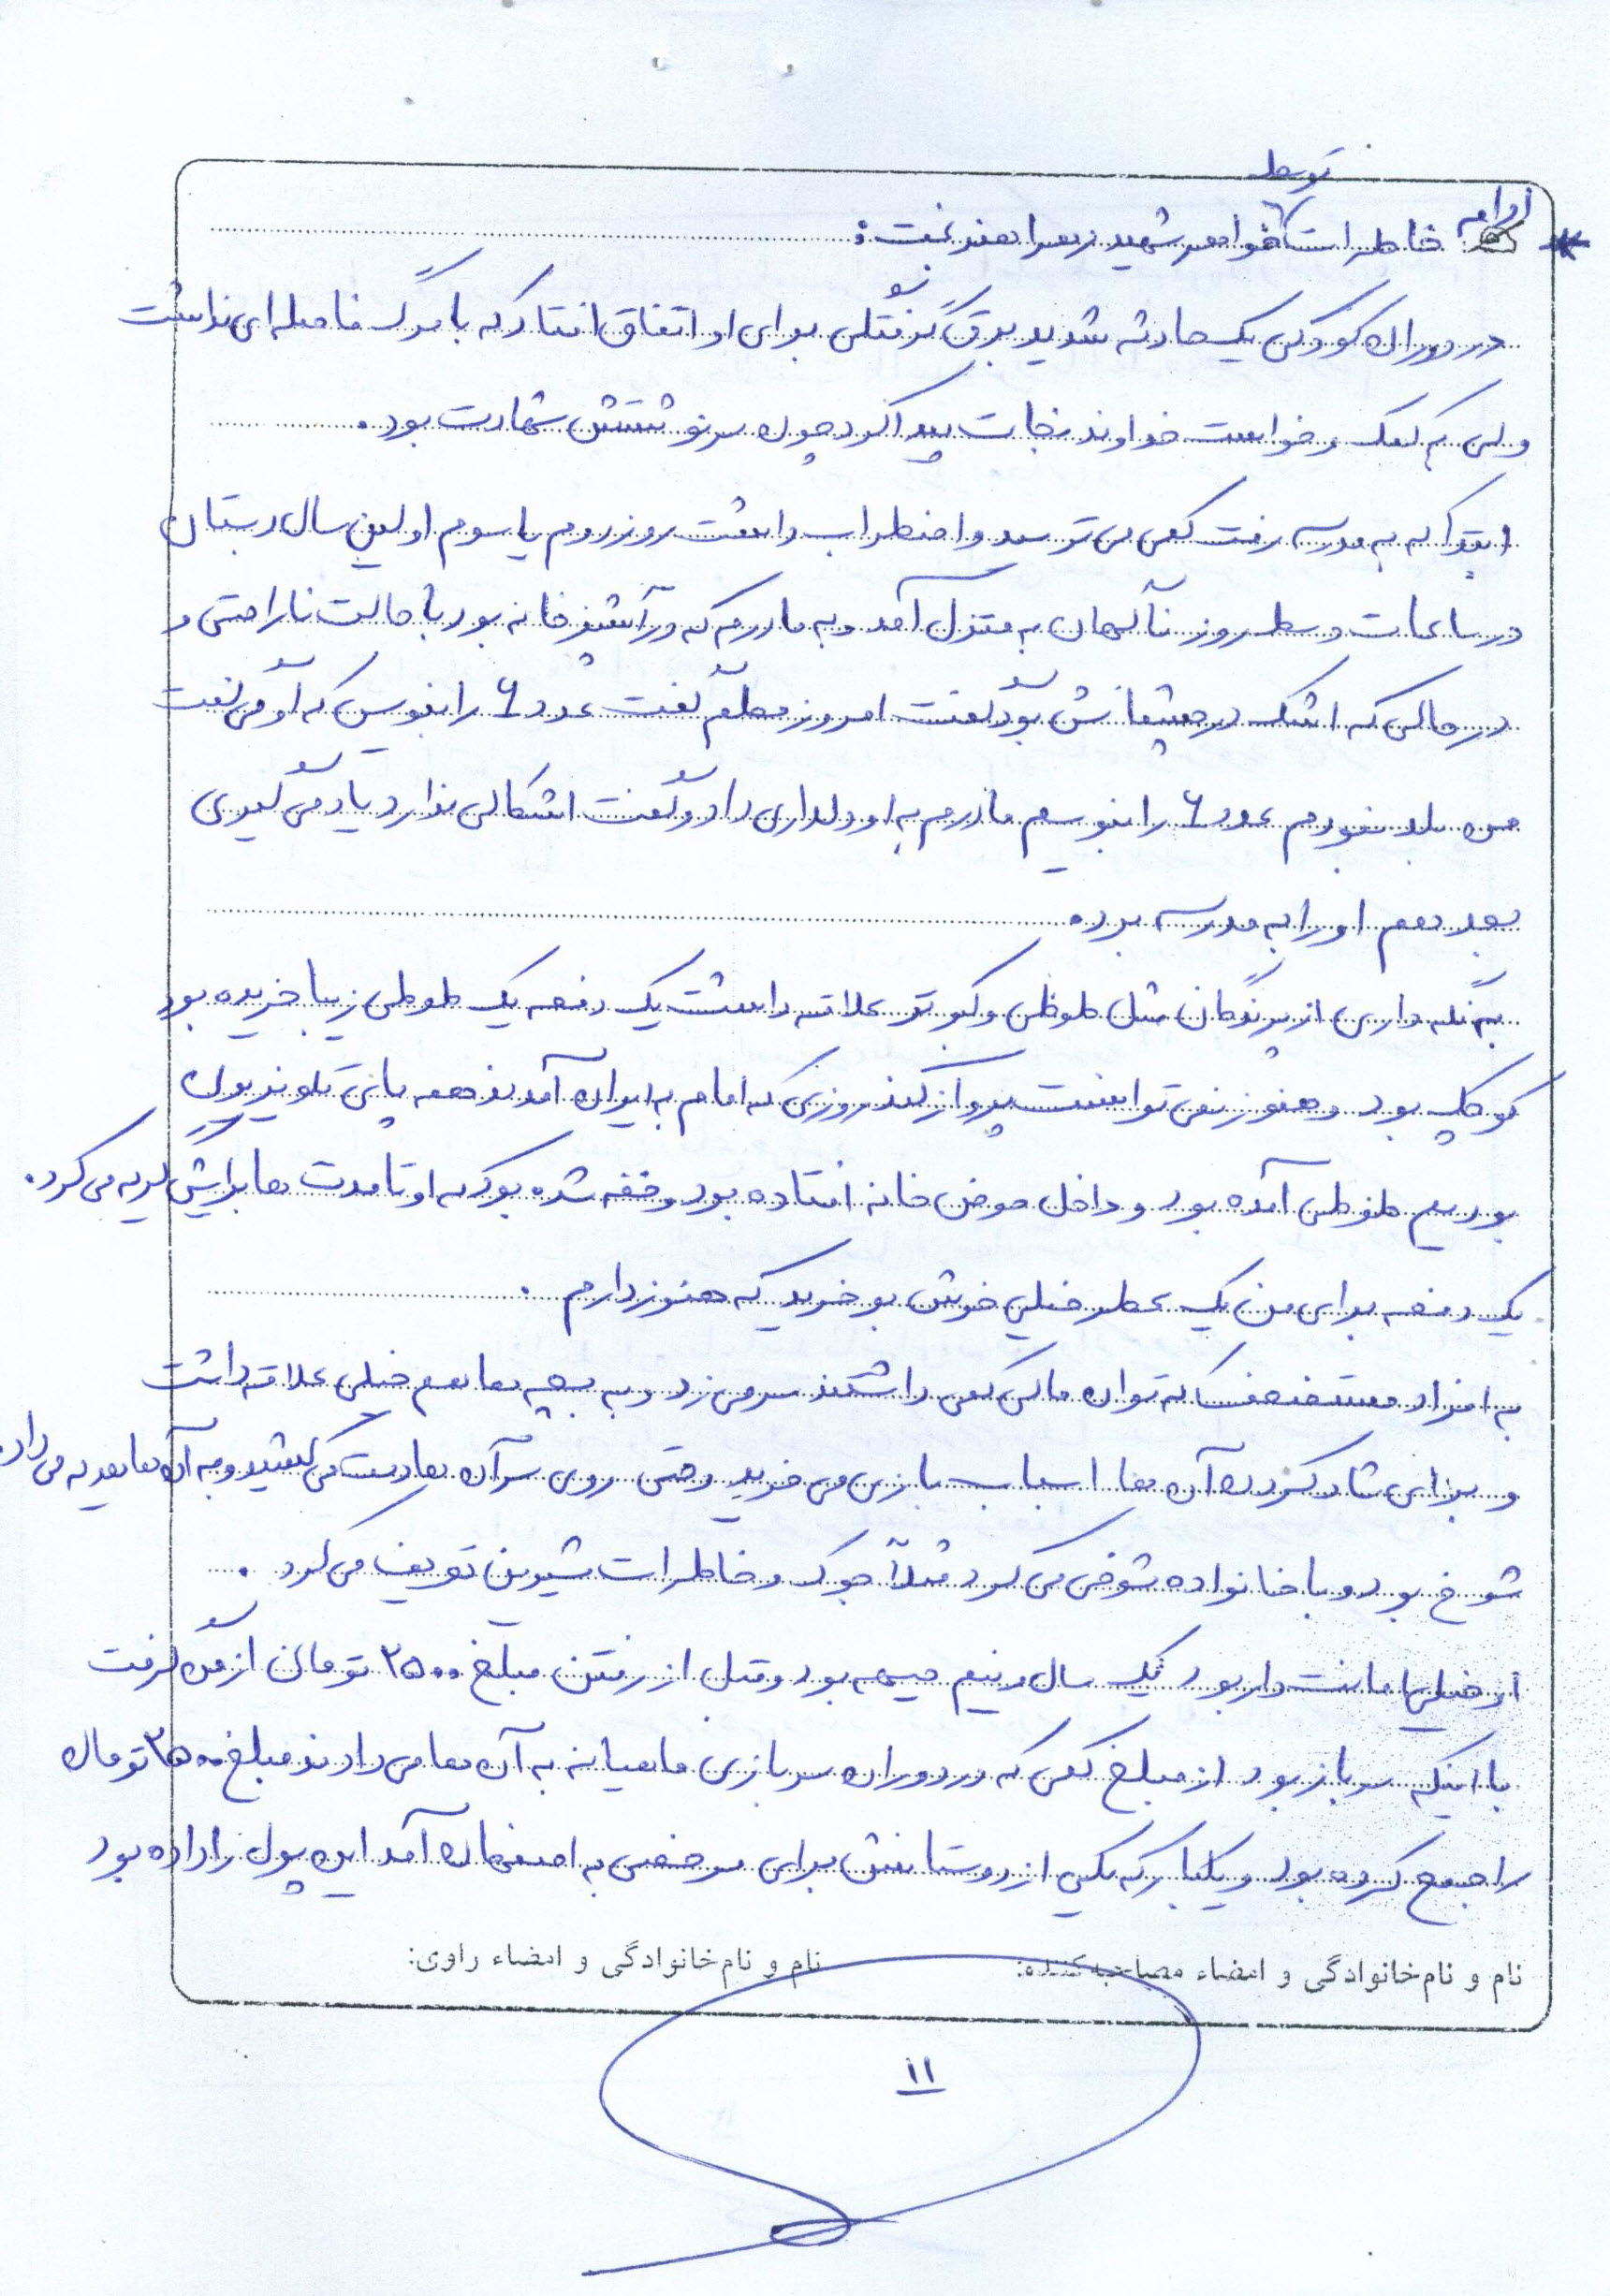 توسط
* ادامه خاطرات خواهر شهید زهرا هنربخت:
در دوران کودکی یک حادثه شدید برق گرفتگی برای او اتفاق افتاد که با مرگ فاصله ای نداشت
ولی به کمک و خواست خداوند نجات پیدا کرد چون سرنوشتش شهادت بود.
ابتدا که به مدرسه رفت کمی می ترسید و اضطراب داشت روز دوم یا سوم اولین سال دبستان
در ساعات وسط روز ناگهان به منزل آمد و به مادرم که در آشپزخانه بود با حالت ناراحتی و
در حالی که اشک در چشمانش بود گفت امروز معلم گفت عدد ۶ را بنویس که او می گفت
من بلد نبودم عدد ۶ را بنویسم مادرم به او دلداری داد و گفت اشکالی ندارد یاد می گیری
بعد هم او را به مدرسه برد.
به نگه داری از پرندگان مثل طوطی و کبوتر علاقه داشت یک دفعه یک طوطی زیبا خریده بود
کوچک بود و هنوز نمی توانست پرواز کند روزی که امام به ایران آمدند همه پای تلویزیون
بودیم طوطی آمده بود و داخل حوض خانه افتاده بود و خفه شده بود که او تا مدت ها برایش گریه می کرد.
یک دفعه برای من یک عطر خیلی خوش بو خرید که هنوز دارم.
به افراد مستضعف که توان مالی کمی داشتند سر می زد و به بچه ها هم خیلی علاقه داشت
و برای شاد کردن آن ها اسباب بازی می خرید و حتی روی سر آن ها دست می کشید و به آن ها هدیه می داد.
شوخ بود و با خانواده شوخی می کرد مثلاً جوک و خاطرات شیرین تعریف می کرد.
او خیلی امانت دار بود یک سال و نیم جبهه بود و قبل از رفتن مبلغ ۲۵۰۰ تومان از من گرفت
با اینکه سرباز بود از مبلغ کمی که در دوران سربازی ماهیانه به آن ها می دادند مبلغ ۲۵۰۰ تومان
را جمع کرده بود و یکبار که یکی از دوستانش برای مرخصی به اصفهان آمد این پول را داده بود
نام و نام خانوادگی و امضاء مصاحبه کننده: نام و نام خانوادگی و امضاء راوی:
۱۱